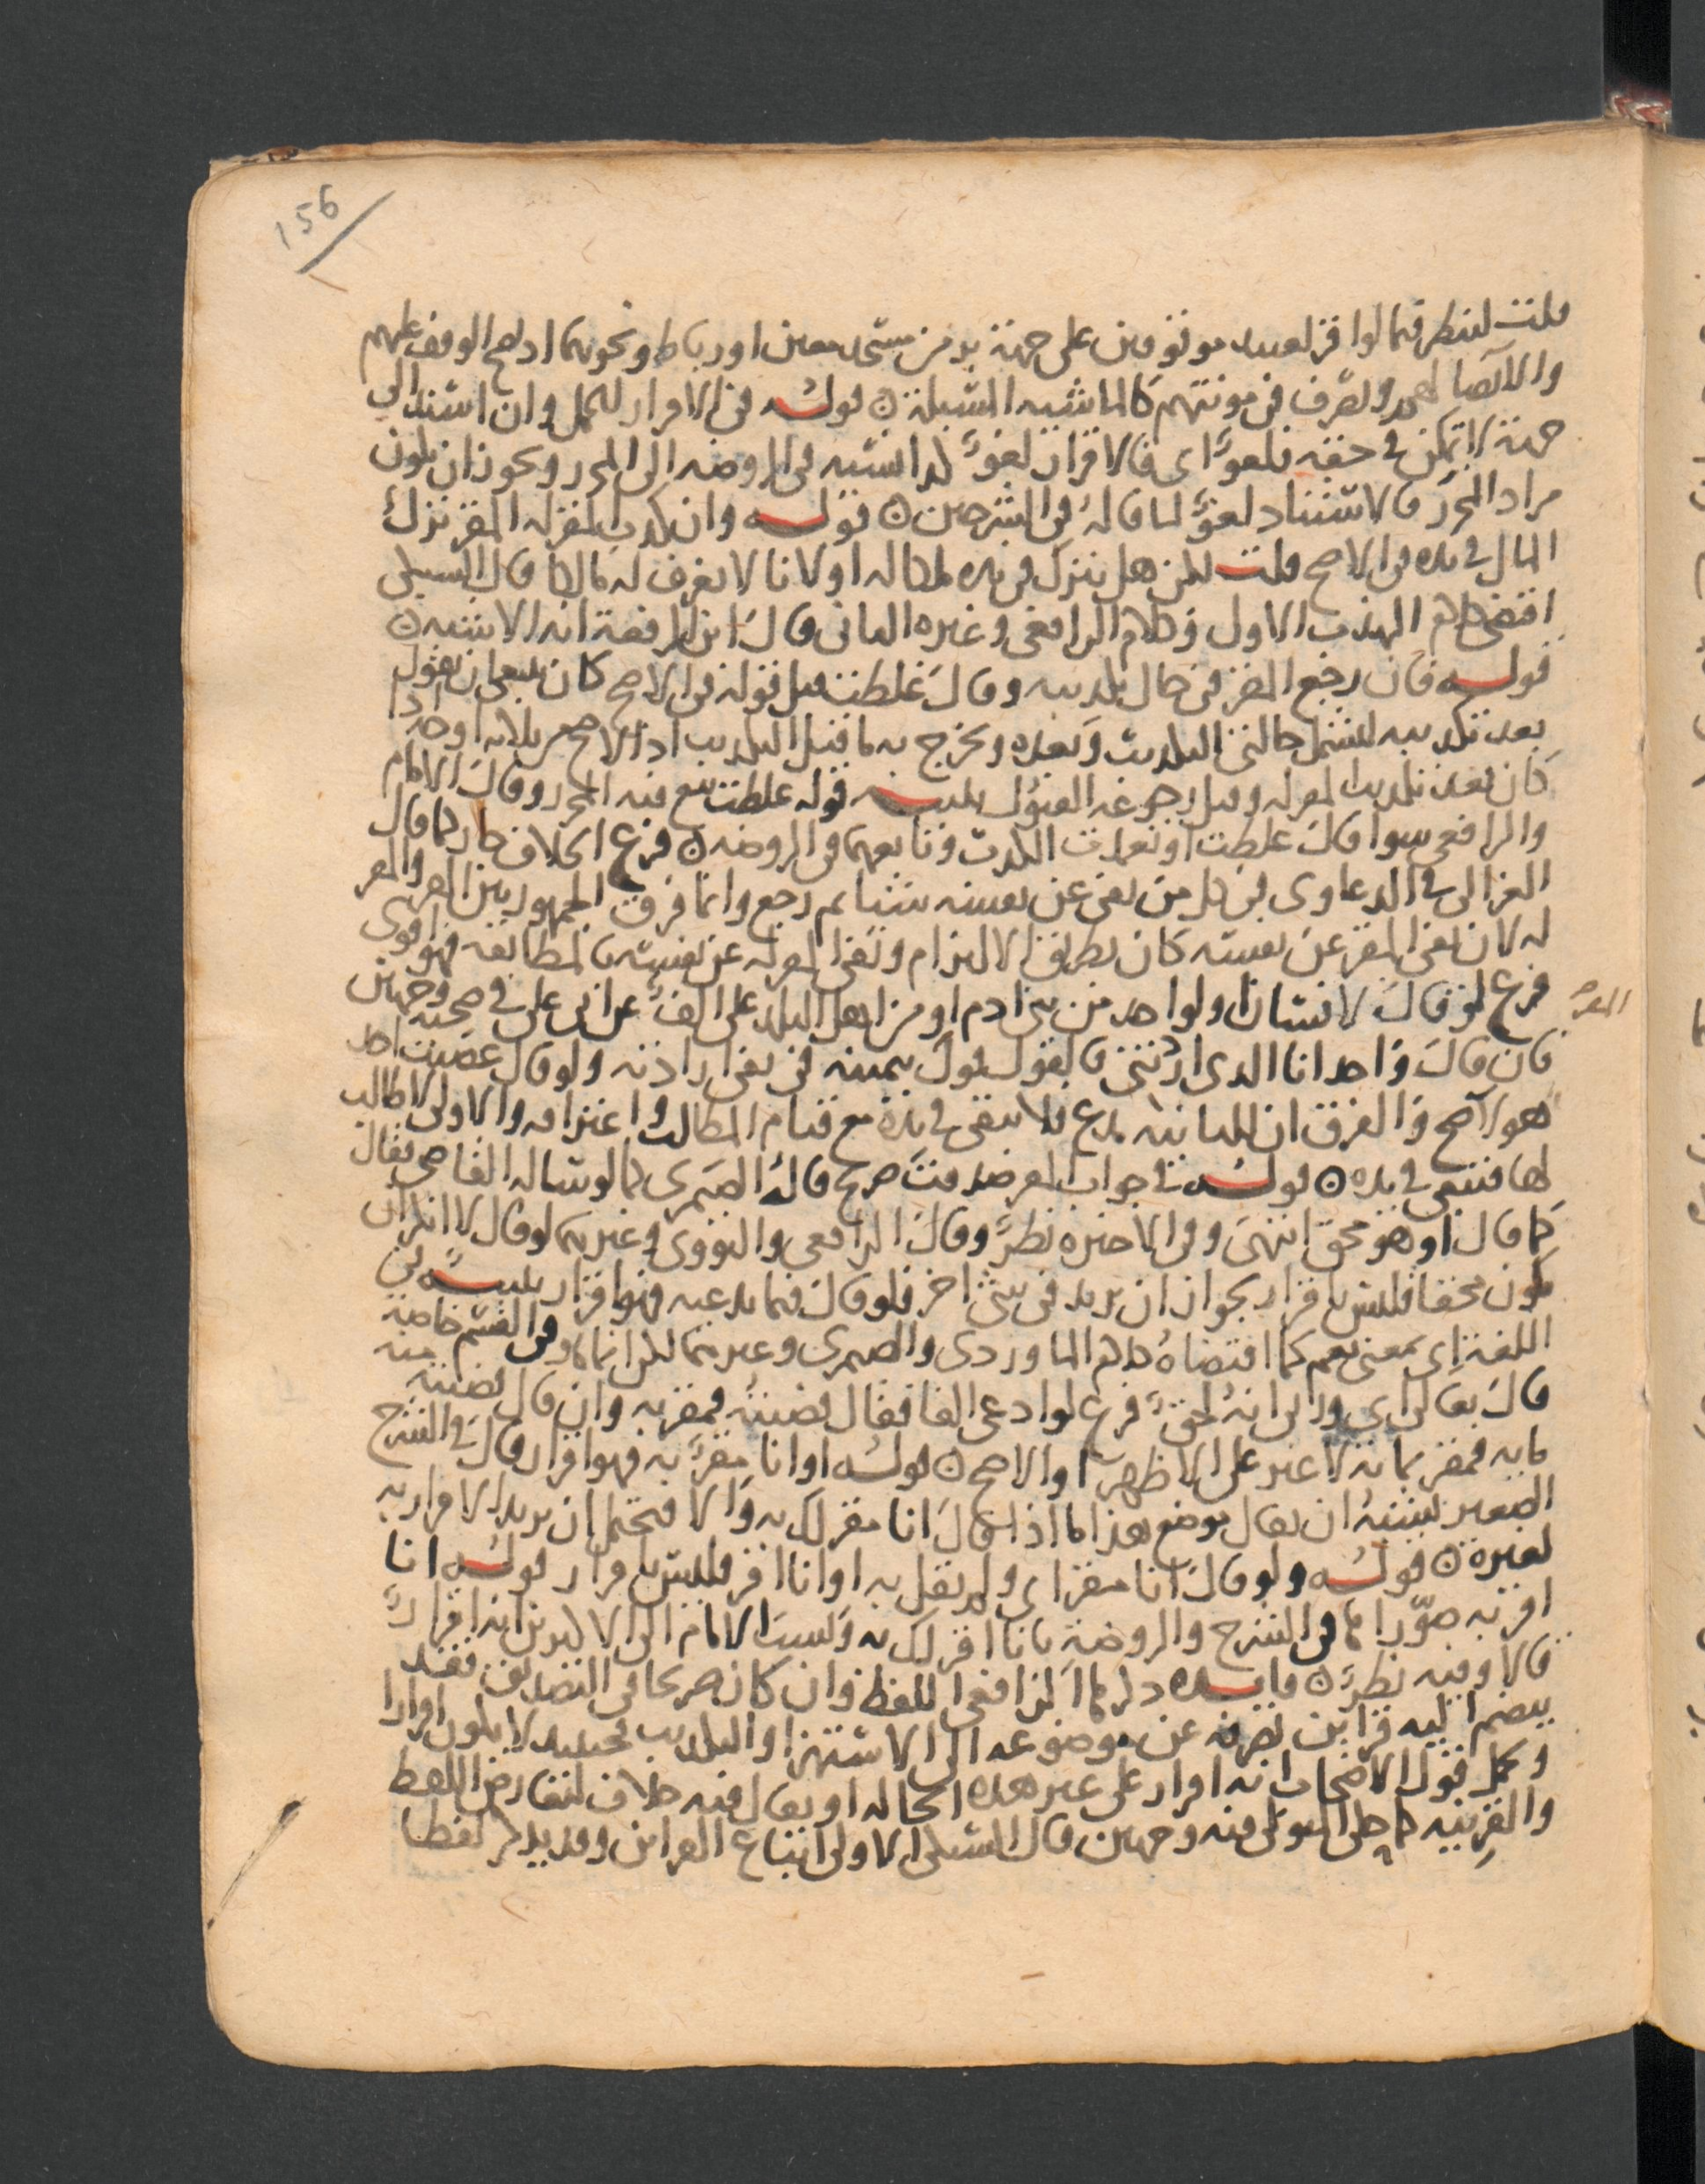 156
قلت لينظر فيما لو اقر لعبيد موقوفين على جهة بر من مسجد معين او رباط ونحوهما اذ يصح الوقف عليهم
والايصا لهم ويصرف في مونتهم كالماشيه المسبلة ۞ قوله في الاقرار للحمل وان اسند الى
جهة لا يمكن في حقه فلغو اى فالاقرار لغو كذا نسبه في الروضه الى المحرر ويجوز ان يكون
مراد المحرر فالاسناد لغو لما قاله في الشرحين ۞ قوله وان كذب المقر له المقر ترك
المال في يده في الاصح قلت لكن هل يترك في يده لملكا له او لانا لا نعرف له مالكا قال السبكي
اقتضى كلام المهذب الاول وكلام الرافعي وغيره الثانى قال ابن الرفعة انه الاشبه ۞
قوله فان رجع المقر في حال تكذيبه وقال غلطت قبل قوله في الاصح كان ينبغي ان يقول
بعد تكذيبه ليشمل حالتى التكذيب وبعده ويخرج به ما قبل التكذيب اذ الاصح
كان بعد تكذيب المقر له وقبل رجوعه القبول تنبيه قوله غلطت تبع فيه المحرر وقال الامام
والرافعي سوا قال غلطت او تعمدت الكذب وتابعهما في الروضه ۞ فرع الخلاف جار كما قال
الغزالى في الدعاوى في كل من نفى عن نفسه شيئا ثم رجع وانما فرق الجمهور بين المقر والمقر
له لان نفى المقر عن نفسه كان بطريق الالتزام ونفى المقر له عن نفسه بالمطابقه فهو اقوى
فرع لو قال لانسان او لواحد من بنى ادم او من اهل البلد على الف في صحته وجهين
فان قال واحد انا الذى اردتنى فالقول قول بيمينه في نفى ارادته ولو قال غصبت احد
هولا صح والفرق ان الثانيه فلا يبقى في يده مع قيام المطالب واعترافه والاولى لا طالب
لها فتبقى في يده ۞ قوله في جواب صرح قاله الصيمرى كما لو ساله القاضى فقال
كما قال او هو محق انتهى وفي الاخيره نظر وقال الرافعي والنووى وغيرهما لو قال لا انكر ان
يكون محقا فليس باقرار بجواز ان يريد في شى اخر فلو قال فيما يدعيه فهو اقرار تنبيه في
اللغة اى بمعنى نعم كما اقتضاه كلام الماوردى والصيمرى وغيرهما لكن انما وفي القسم خاصة
قال تعالى اى وربى انه لحق فرع لو ادعى الفا فقال قضيته فمقر به وان قال قضيت منه
مايه فمقر بمايه لا غير على الاظهر او الاصح ۞ قوله او انا مقر به فهو اقرار قال في الشرح
الصغير يشبه ان يقال موضع هذا ما اذا قال انا مقر لك به والا فيحتمل ان يريد الاقرار به
لغيره ۞ قوله ولو قال انا مقر اى ولم يقل به او انا اقر فليس باقرار قوله انا
اقر به صوراها في الشرح والروضة بانا اقر لك به ونسب الامام الى الاكثرين انه اقرار
قالا وفيه نظر ۞ فايده ذكرها الرافعي اللفظ وان كان صريحا في التصديق فقد
ينضم اليه قراين تصرفه عن موضوعه الى الاستهزا والتكذيب فحينئذ لا يكون اقرارا
ويحمل قول الاصحاب انه اقرار على غير هذه الحاله او يقال فيه خلاف لتعارض اللفظ
والقرينه كما حكى المتولى فيه وجهين قال السبكى الاولى اتباع القراين وقد يذكر لفظا